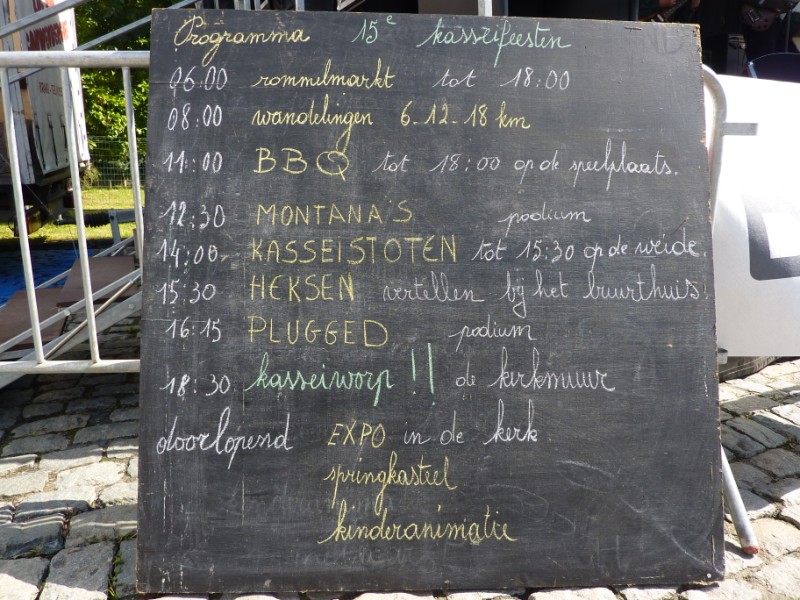 Programma 15e kasseifeesten
06:00 rommelmarkt tot 18:00
08:00 wandelingen 6-12-18 km
11:00 BBQ tot 18:00 op de speelplaats.
12:30 MONTANA'S podium
14:00- KASSEISTOTEN tot 15:30 op de weide.
15:30 HEKSEN vertellen bij het buurthuis!
16:15 PLUGGED podium
18:30 kasseiworp !! de kerkmuur
doorlopend EXPO in de kerk
springkasteel
kinderanimatie